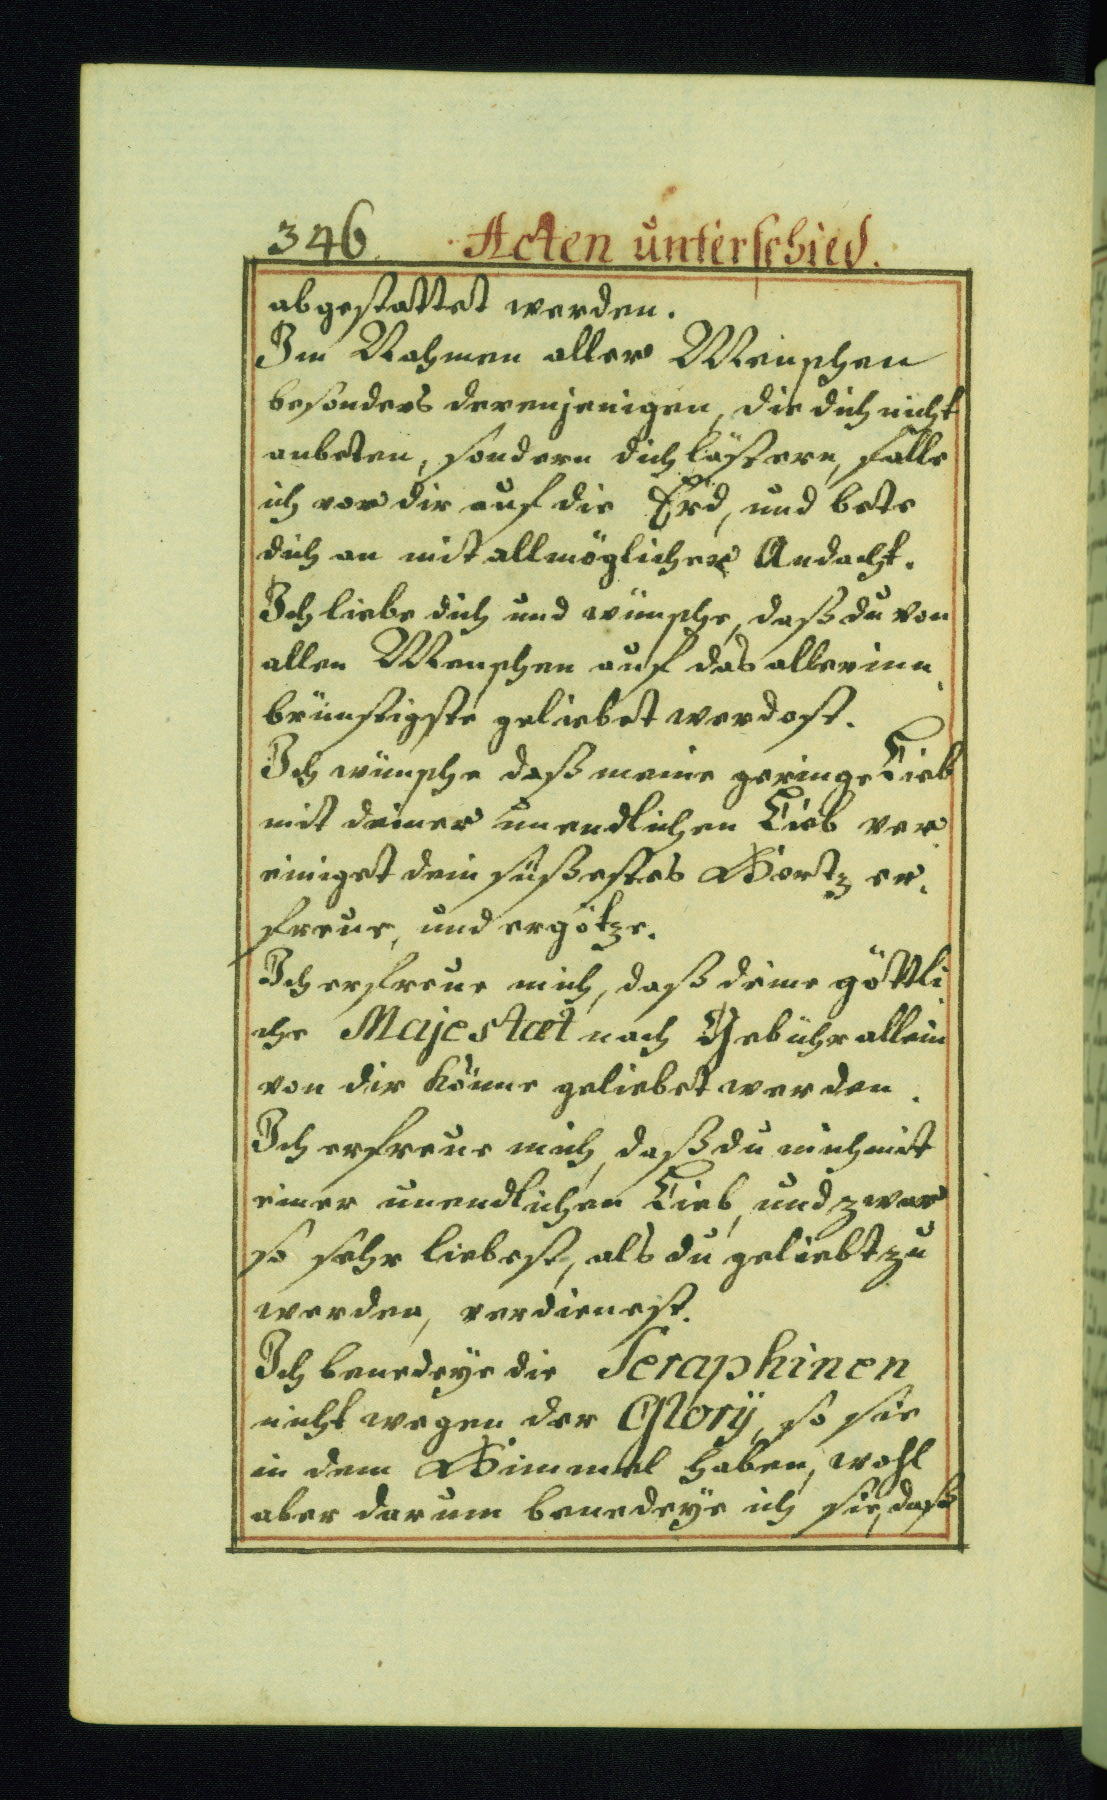 346. Acten unterschied.
abgestattet werden.
Im Nahmen aller Menschen
besonders derenjenigen, die dich nicht
anbeten, sondern dich lästern, falle
ich vor dir auf die Erd, und bete
dich an mit allmöglicher Andacht.
Ich liebe dich und wünsche, daß du von
allen Menschen auf das allerinn
brünstigste geliebet werdest.
Ich wünsche daß meine geringe Lieb
mit deiner unendlichen Lieb ver
einiget dein süßestes Hertz er,
freue, und ergötze.
Ich erfreue mich, daß deine göttli
che Majestæt nach Gebühr allein
von dir könne geliebet werden.
Ich erfreue mich, daß du mich mit
einer unendlichen Lieb, und zwar
so sehr liebest, als du geliebt zu
werden, verdienest.
Ich benedeÿe die Seraphinen
nicht wegen der Glorÿ, so sie
in dem Himmel haben, wohl
aber darum benedeÿe ich sie, daß